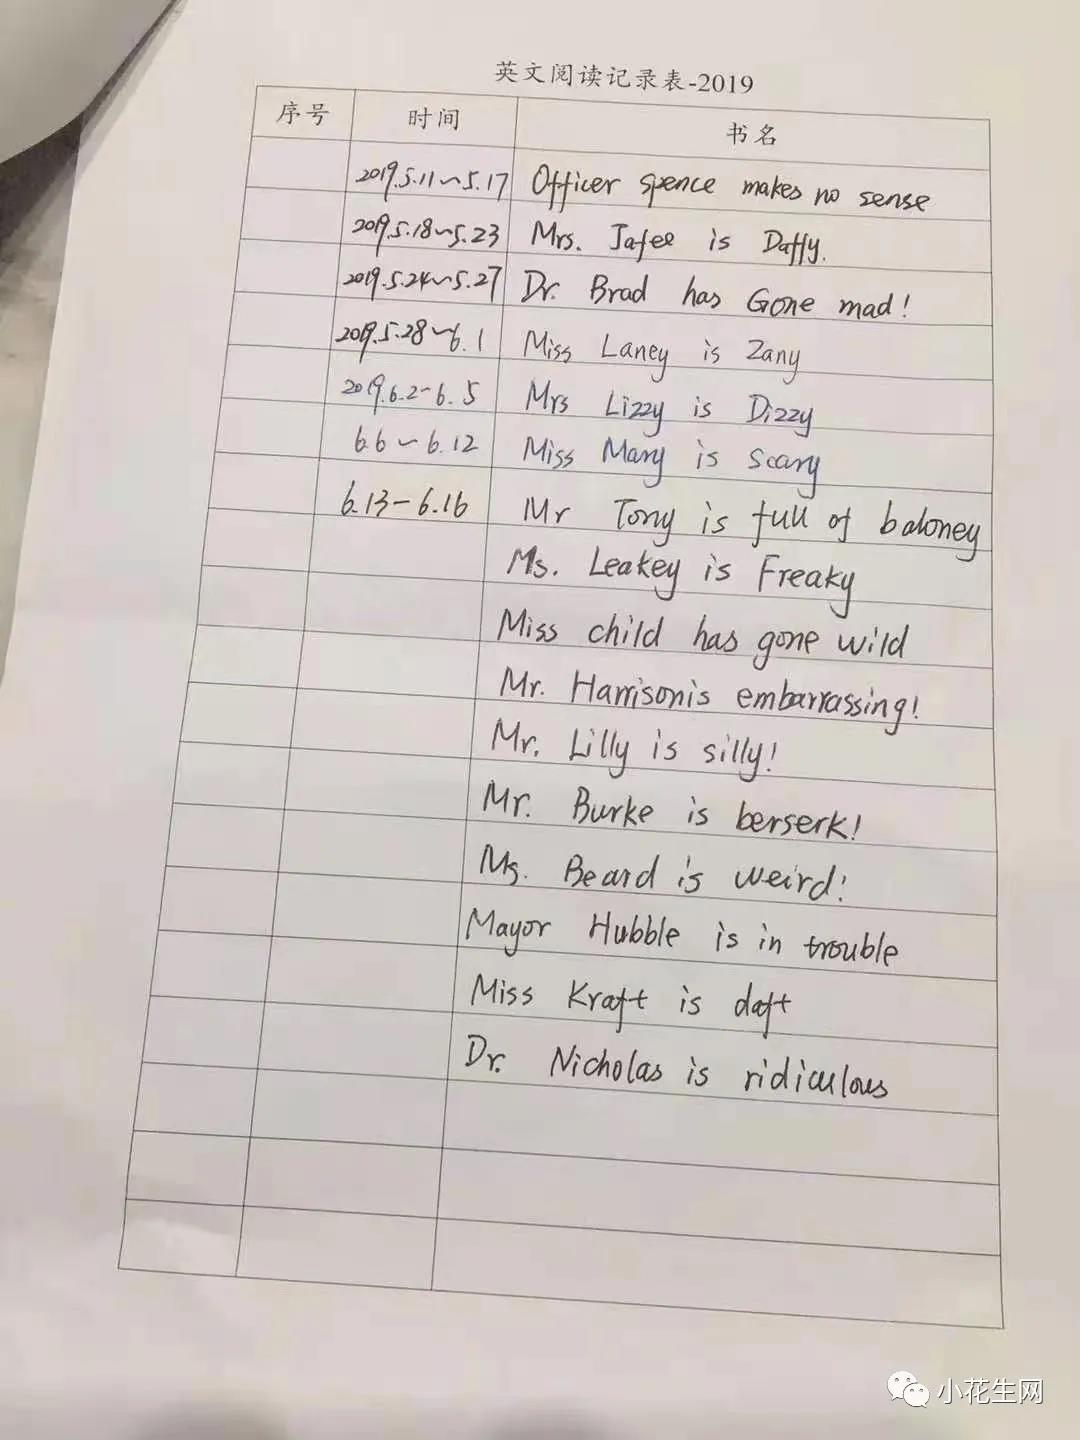 英文阅读记录表-2019
序号 时间 书名
2019.5.11~5.17 Officer spence makes no sense
2019.5.18~5.23 Mrs. Jafee is Daffy.
2019.5.24~5.27 Dr. Brad has Gone mad!
2019.5.28~6.1 Miss Laney is Zany
2019.6.2-6.5 Mrs Lizzy is Dizzy
6.6~6.12 Miss Mary is Scary
6.13-6.16 Mr Tony is full of baloney
Ms. Leakey is Freaky
Miss child has gone wild
Mr. Harrison is embarrassing!
Mr. Lilly is silly!
Mr. Burke is berserk!
Ms. Beard is weird!
Mayor Hubble is in trouble
Miss Kraft is daft
Dr. Nicholas is ridiculous
小花生网